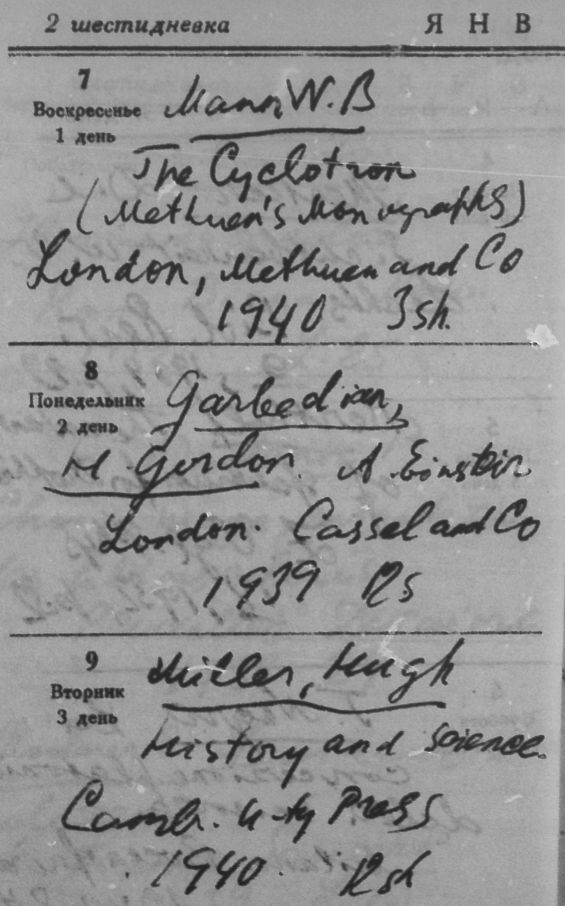 2 шестидневка ЯНВ
7
Воскресенье
1 день
Mann W. B
The Cyclotron
(Methuen's Monographs)
London, Methuen and Co
1940 3 sh.
8
Понедельник
2 день
Garbedian,
H. Gordon. A. Einstein
London. Cassel and Co
1939 12 s
9
Вторник
3 день
Miller, Hugh
History and science.
Camb. U-ty Press
1940. 12 sh